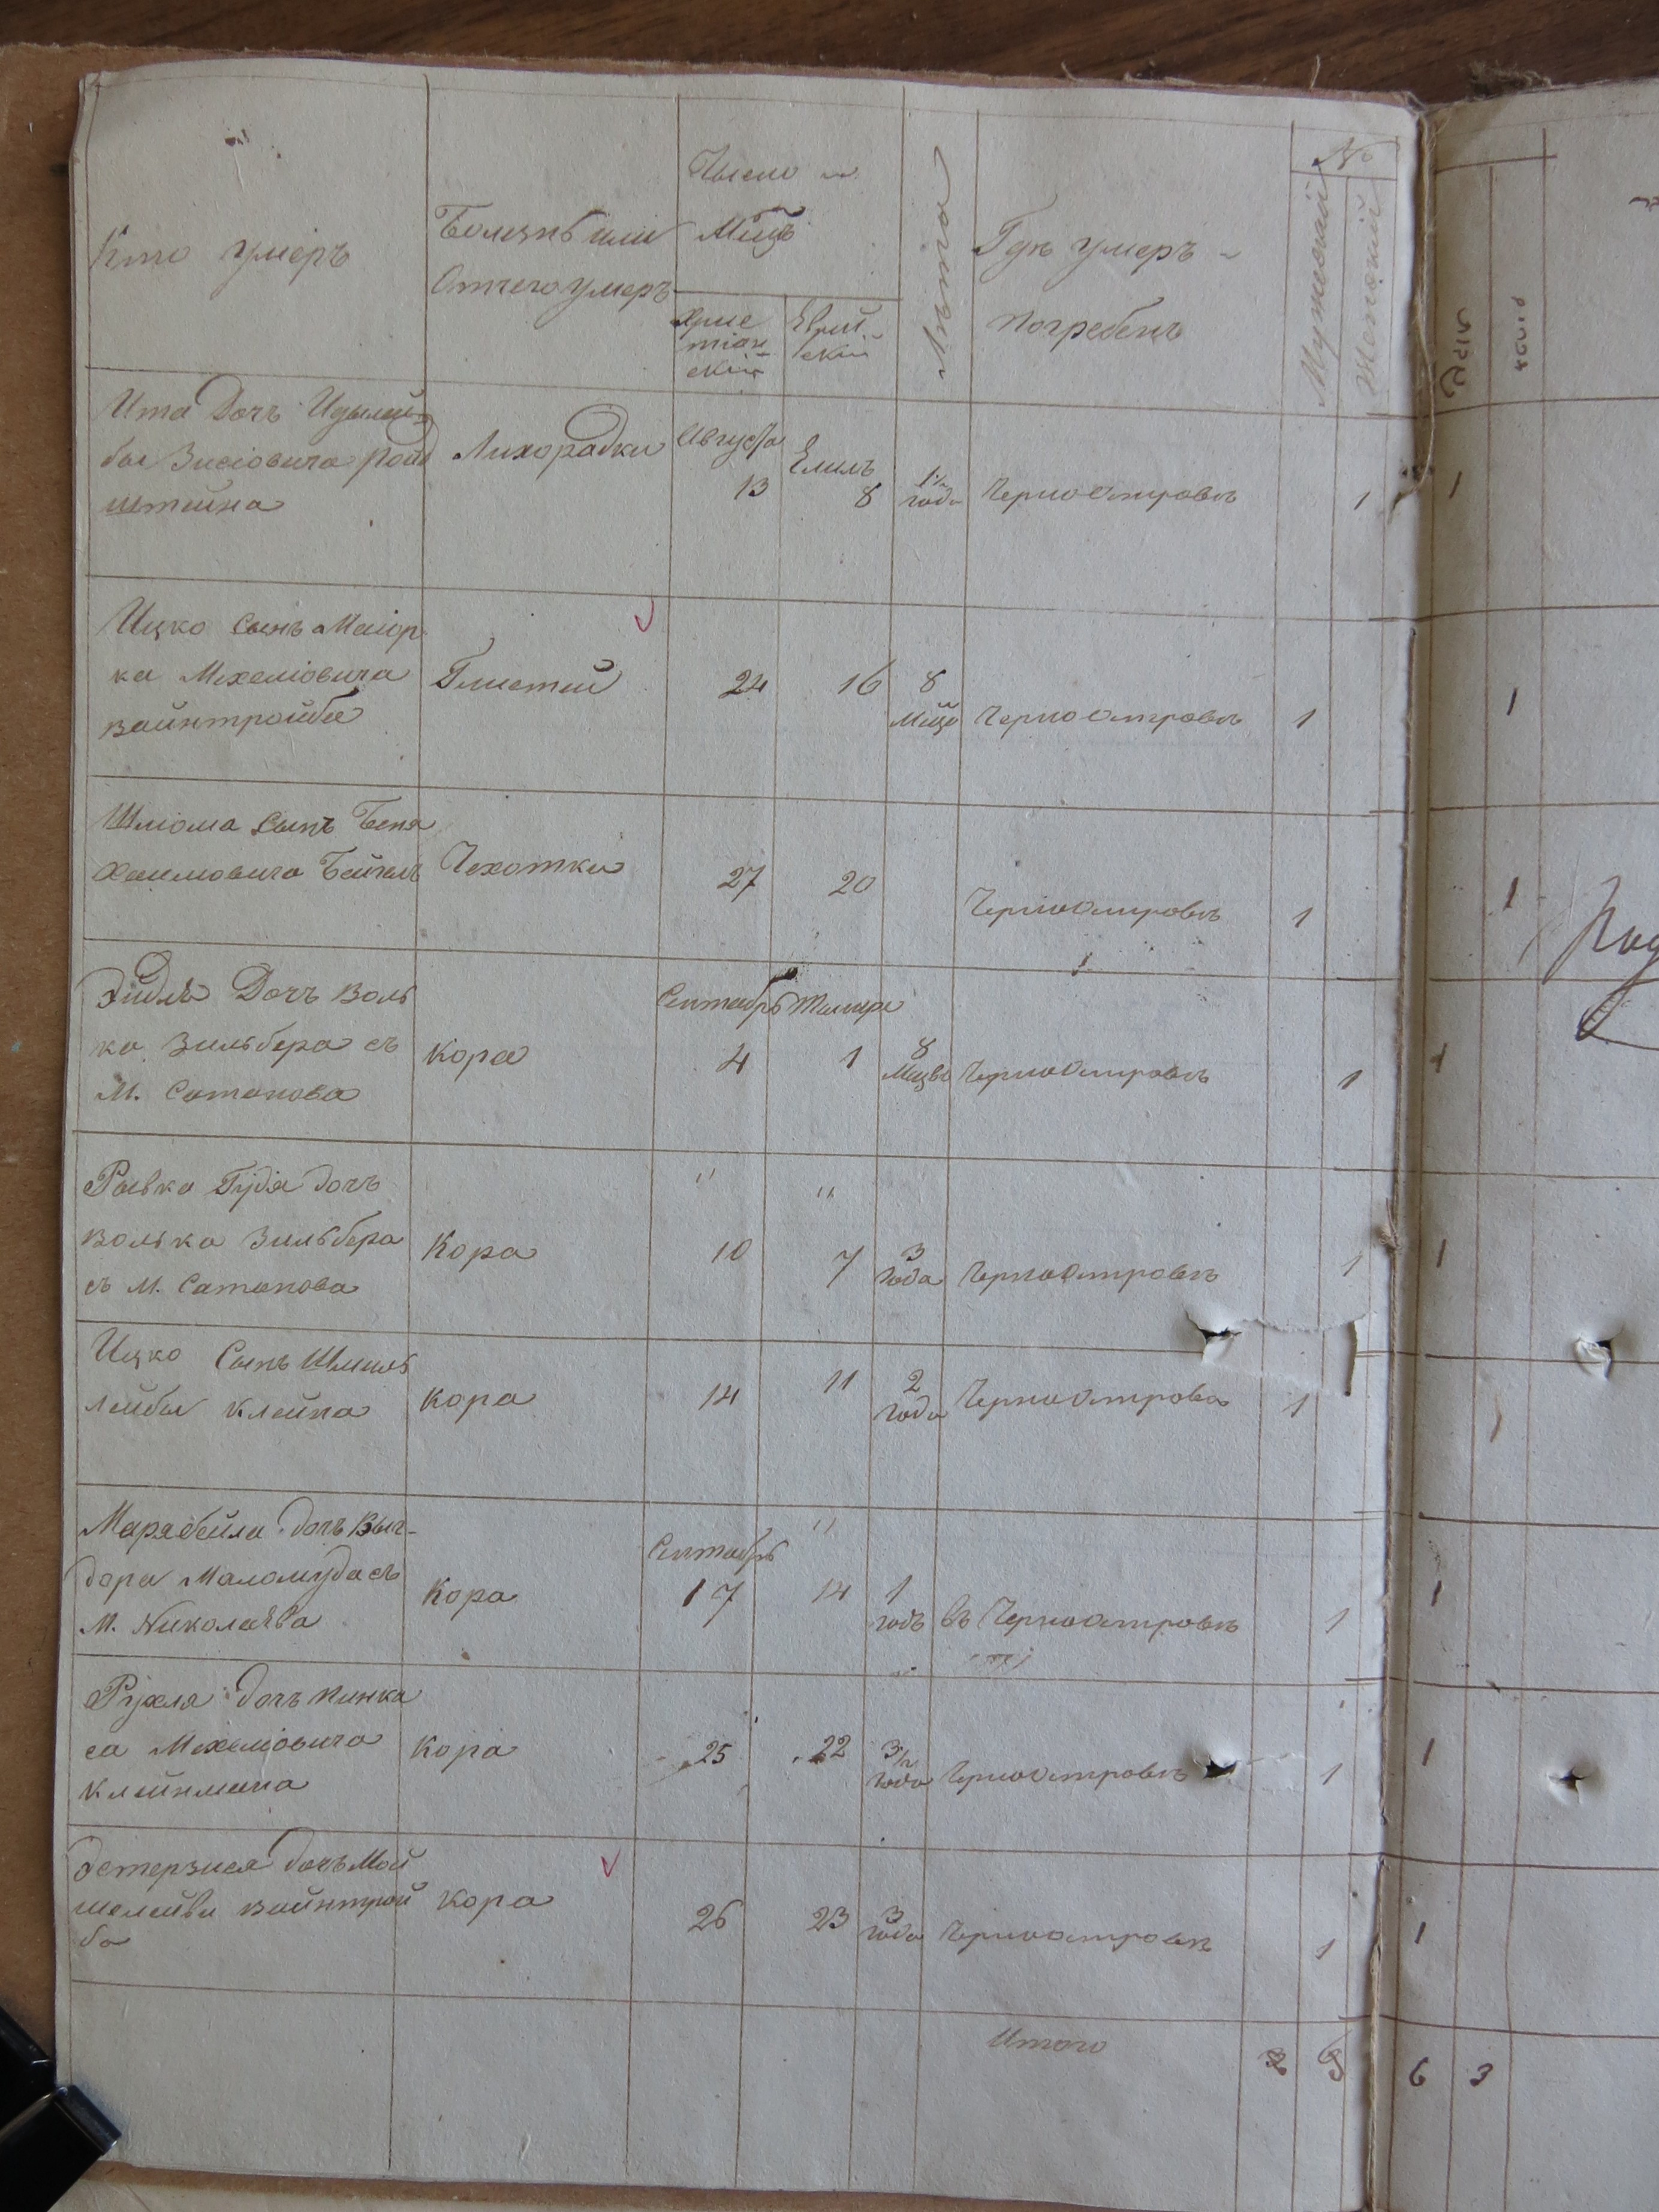 Кто умеръ
Болезнь или
Отчего умеръ
Число и
Мѣсц
Христіанскій
Еврейскій
Лѣта
Гдѣ умеръ и
погребенъ
№
Мужескій
Женскій
Ита Дочь
Зисіовича Ройт
штейна
Лихорадки
Августа
13
Елилъ
8
1½
года
Черноостровѣ
1
1
Ицко Сынъ Маіор
ка Мехеліовича
Вайнтройба
Глистей
24
16
8
Черноостровѣ
1
1
Шліома Сынъ Беня
Хаимовича
Чехотки
27
20
Черноостровѣ
1
1
Эйдля Дочь Воль
ка Зильбера съ
М. Сатанова
Кора
Сентябрь
4
1
8
Черноостровѣ
1
1
Рывка Гудя дочь
Волька Зильбера
съ М. Сатанова
Кора
"
10
"
7
3
года
Черноостровѣ
1
1
Ицко Сынъ Шмиль
лейбы Клейна
Кора
14
11
2
года
Черноострова
1
1
Марябейла дочь Выг-
дора Маломуда съ
М. Николаева
Кора
Сентябрь
17
"
14
1
годъ
въ Черноостровѣ
1
1
Рухля дочь Пинка
са Мехеліовича
Клейнмана
Кора
25
22
3½
года
Черноостровѣ
1
1
Эстерзися дочь Мой
шелейбы Вайнтрой
ба
Кора
26
23
3
года
Черноостровѣ
1
1
Итого
6
3